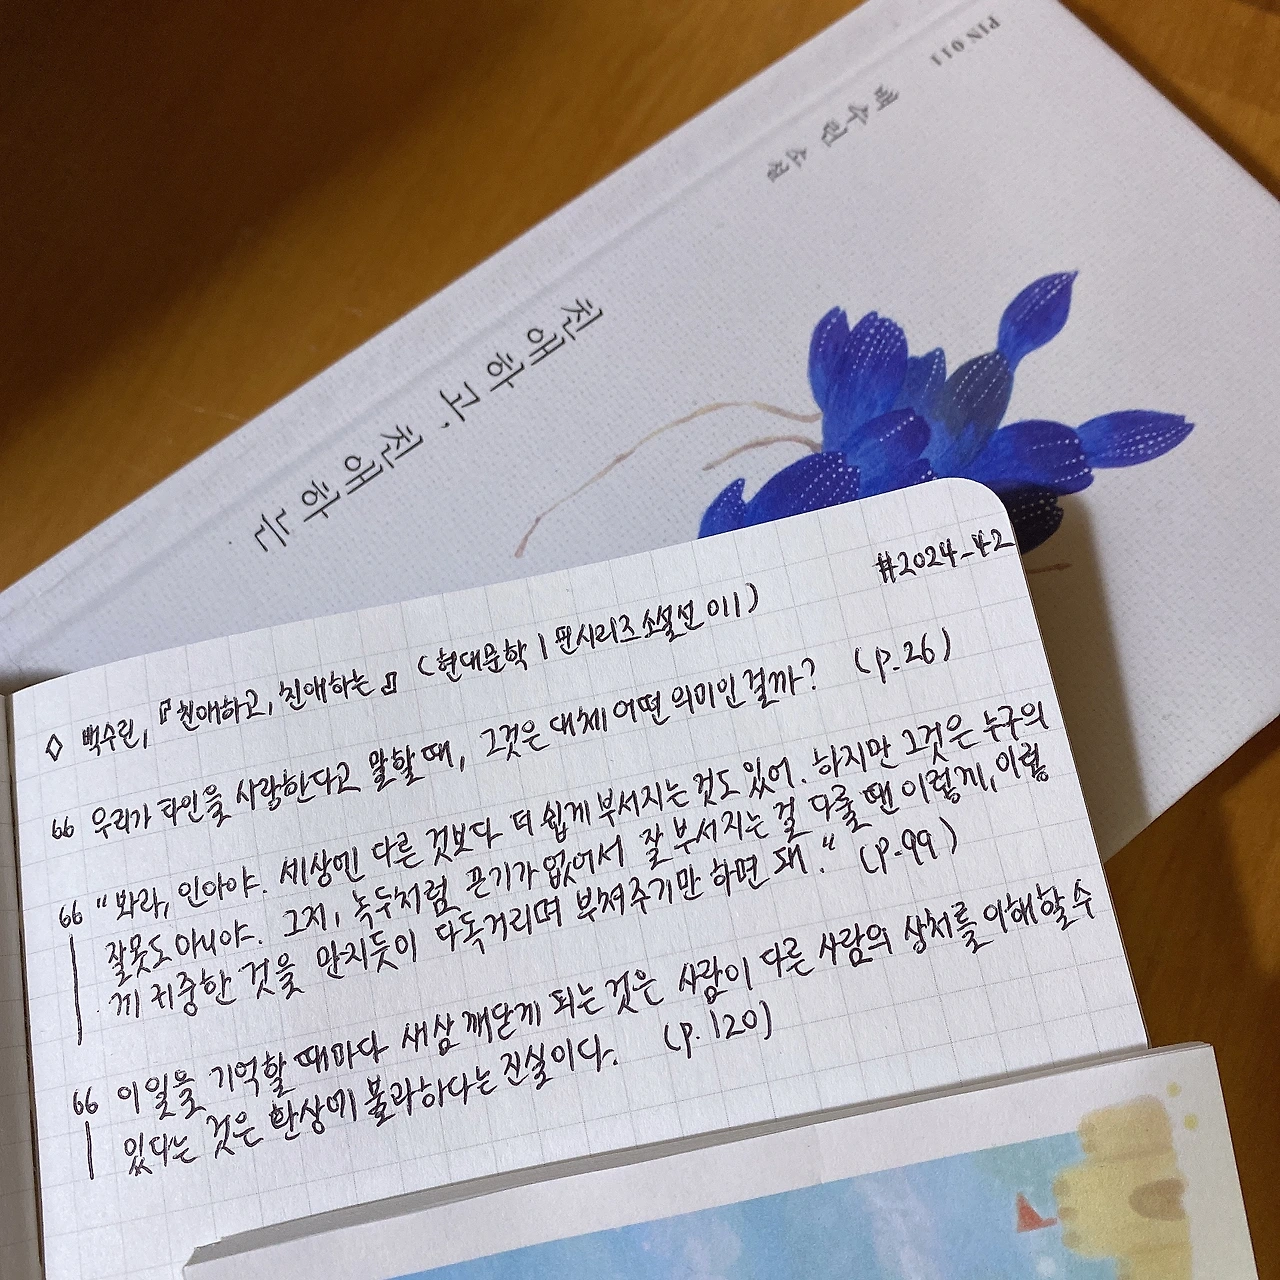 PIN 011
백수린 소설
친애하고, 친애하는
#2024_42
◇ 백수린, 『친애하고, 친애하는』 (현대문학 | 핀시리즈 소설선 011)
66 우리가 타인을 사랑한다고 말할 때, 그것은 대체 어떤 의미인 걸까? (p.26)
66 "봐라, 인아야. 세상엔 다른 것보다 더 쉽게 부서지는 것도 있어. 하지만 그것은 누구의
잘못도 아니야. 그저, 녹두처럼 끈기가 없어서 잘 부서지는 걸 다룰 땐 이렇게, 이렇
게 귀중한 것을 만지듯이 다독거리며 부쳐주기만 하면 돼." (p.99)
66 이 일을 기억할 때마다 새삼 깨닫게 되는 것은 사람이 다른 사람의 상처를 이해할 수
있다는 것은 환상에 불과하다는 진실이다. (p.120)